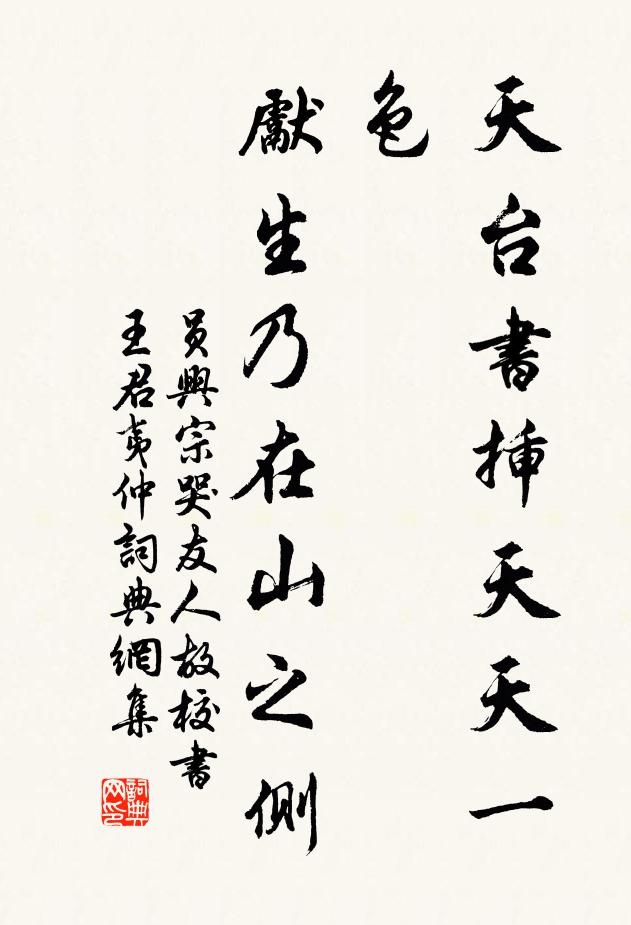 天台書插天天一
色
獻生乃在山之側
員興宗哭友人故校書
王君夷仲詞典網集
詞典
网印